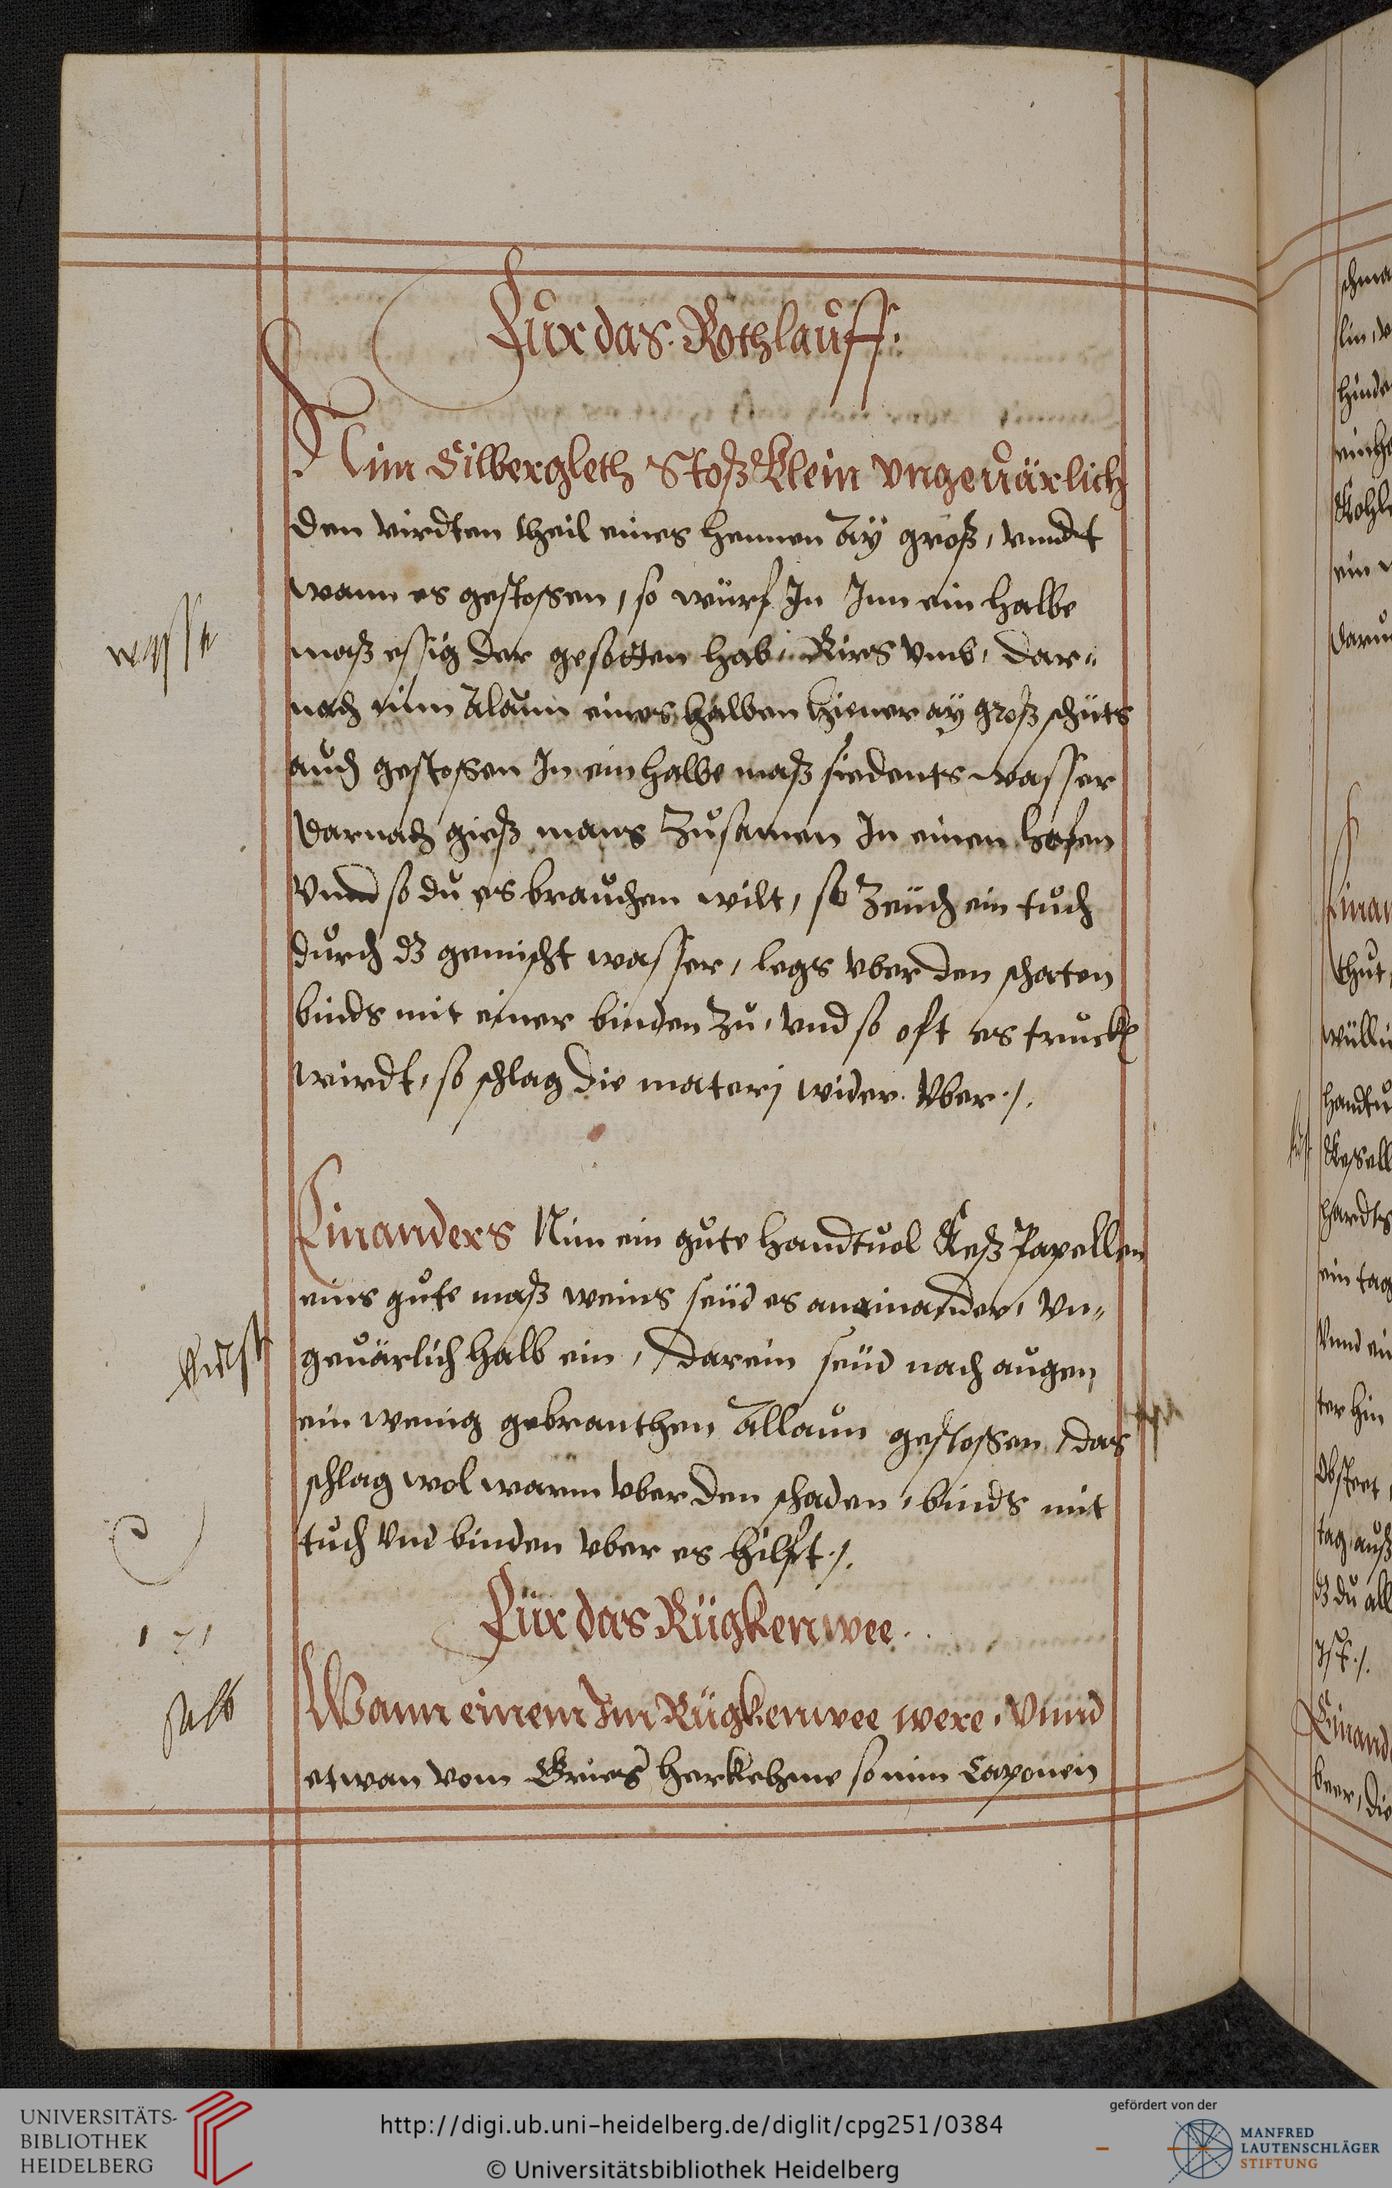 Für das Rothlauff.
Nim Silbergleth Stoß Klein vngeuärlich
den virdten theil eines hennen Ay groß, vnndt
wann es gestossen, so würf In Inn ein halbe
wasse
maß essig der gesotten hab, Rirs vmb, dar„
nach nim Alaun eines halben hiener ay groß schüts
auch gestossen In ein halbe maß siedents wasser
darnach gieß mans Zusamen In einen hafen
Vnnd so du es brauchen wilt, so Zeüch ein tuch
durch dz gemischt wasser, legs vber den schaten
binds mit einer binden Zu, vnd so oft es truck
wirdt, so schlag die materj wider vber ./.
Einanders Nim ein gute handtuol Keß Papellen
eins gute maß weins seüd es aneinander, vn„
geuärlich halb ein, darein seüd nach augen
ein wenig gebranthen Allaun gestossen, das
schlag wol warm vber den schaden, binds mit
tuch vnd binden vber es hilft ./.
Für das Rügkenwee.
171
Wann einem Im Rügkenwee were, Vnnd
salb
etwan vom Gries herkehme so nim Caponen
schma
hinde
Kohl
ein
daru
Einan
thut,
handtu
Kesell
hardts
ein tag
Vnnd ein
ter hin
tag auß
dz du all
Ist ./.
Einand
beer, die
UNIVERSITÄTS-
BIBLIOTHEK
HEIDELBERG
http://digi.ub.uni-heidelberg.de/diglit/cpg251/0384
© Universitätsbibliothek Heidelberg
gefördert von der
MANFRED
LAUTENSCHLÄGER
STIFTUNG